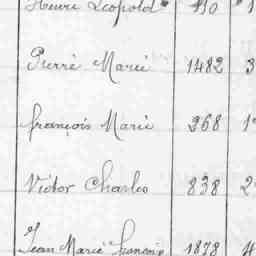 Henri Leopold 410 1
Pierre Marie 1482 3
françois Marie 268 1
Victor Charles 838 2
Jean Marie françois 1878 4